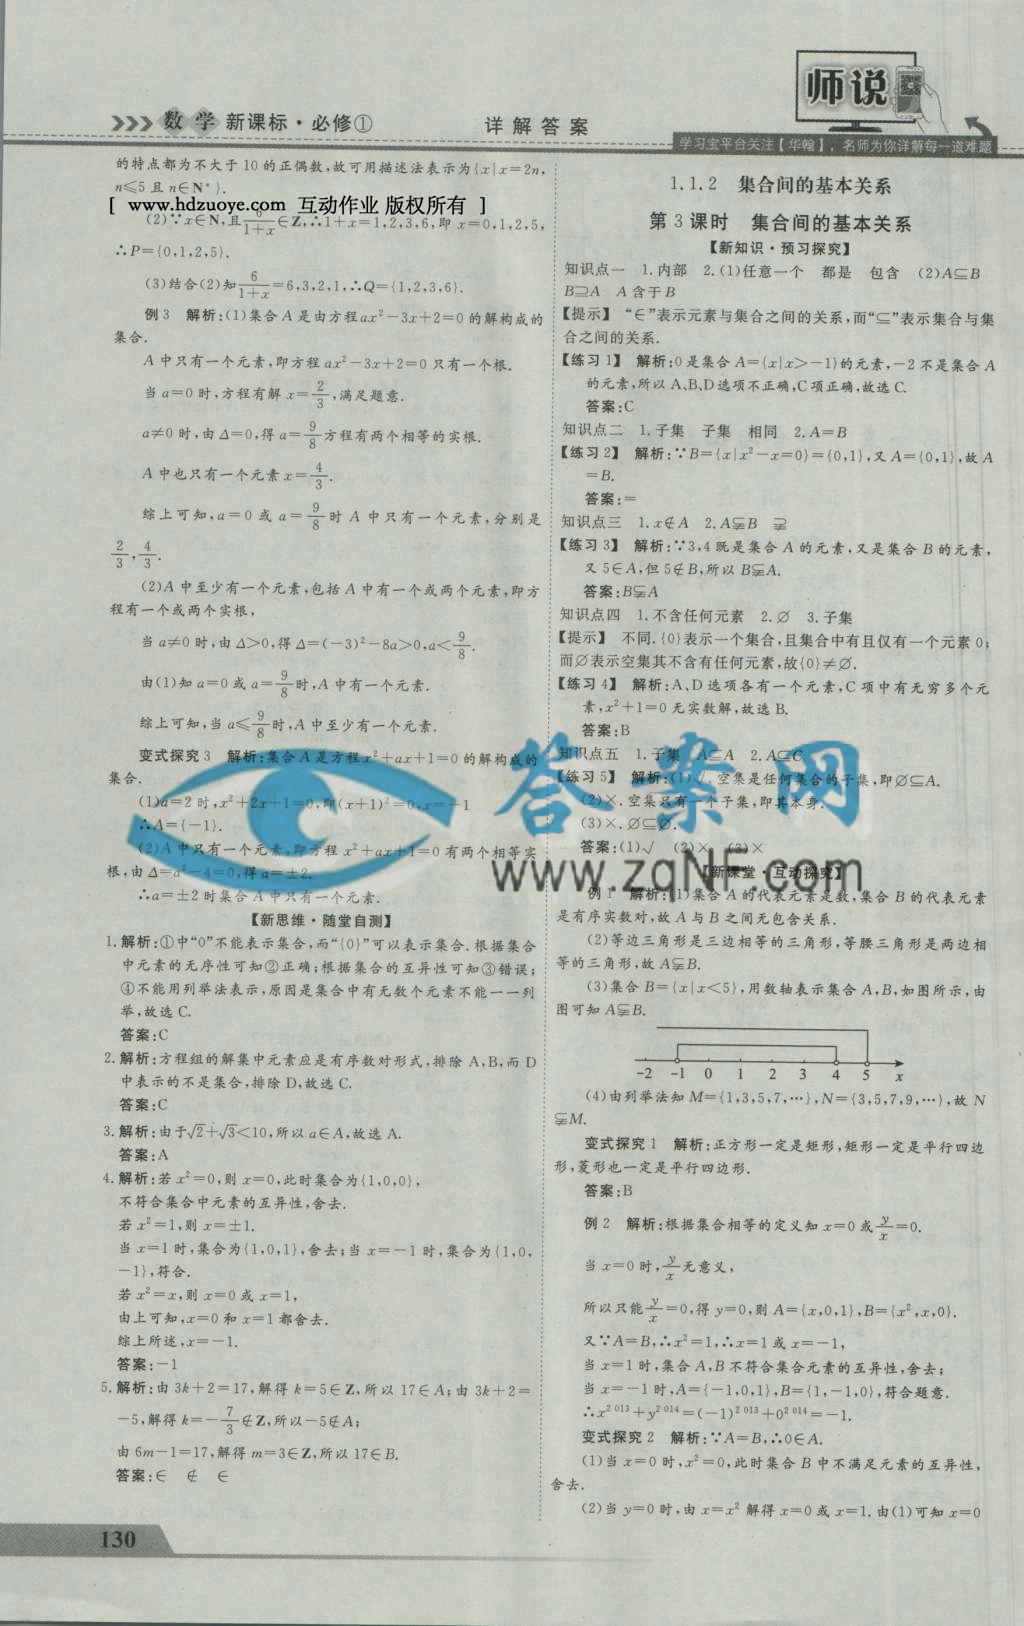 数学 新课标·必修①
详解答案
师说
学习宝平台关注【华翰】，名师为你详解每一道难题
的特点都为不大于 10 的正偶数,故可用描述法表示为{x|x=2n,
n≤5 且 n∈N*}.
[ www.hdzuoye.com 互动作业 版权所有 ]
(2)∵x∈N,且6/(1+x)∈Z,∴1+x=1,2,3,6,即 x=0,1,2,5,
∴P={0,1,2,5}.
(3)结合(2)知6/(1+x)=6,3,2,1,∴Q={1,2,3,6}.
例 3 解析:(1)集合 A 是由方程ax²-3x+2=0 的解构成的
集合.
A 中只有一个元素,即方程 ax²-3x+2=0 只有一个根.
当 a=0 时,方程有解 x=2/3,满足题意.
a≠0 时,由 Δ=0,得 a=9/8方程有两个相等的实根.
A 中也只有一个元素 x=4/3.
综上可知,a=0 或 a=9/8时 A 中只有一个元素,分别是
2/3,4/3.
(2)A 中至少有一个元素,包括 A 中有一个或两个元素,即方
程有一个或两个实根,
当 a≠0 时,由 Δ>0,得 Δ=(-3)²-8a>0,a<9/8.
由(1)知 a=0 或 a=9/8时,A 中有一个元素.
综上可知,当 a≤9/8时,A 中至少有一个元素.
变式探究 3 解析:集合 A 是方程 x²+ax+1=0 的解构成的
集合.
(1)a=2 时,x²+2x+1=0,即(x+1)²=0,x=-1
∴A={-1}.
(2)A 中只有一个元素,即方程 x²+ax+1=0 有两个相等实
根,由 Δ=a²-4=0,得 a=±2.
∴a=±2 时集合 A 中只有一个元素.
【新思维·随堂自测】
1.解析:①中“0”不能表示集合,而“{0}”可以表示集合.根据集合
中元素的无序性可知②正确;根据集合的互异性可知③错误;
④不能用列举法表示,原因是集合中有无数个元素不能一一列
举,故选 C.
答案:C
2.解析:方程组的解集中元素应是有序数对形式,排除 A,B,而 D
中表示的不是集合,排除 D,故选 C.
答案:C
3.解析:由于√2+√3<10,所以 a∈A,故选 A.
答案:A
4.解析:若 x²=0,则 x=0,此时集合为{1,0,0},
不符合集合中元素的互异性,舍去.
若 x²=1,则 x=±1.
当 x=1 时,集合为{1,0,1},舍去;当 x=-1 时,集合为{1,0,
-1},符合.
若 x²=x,则 x=0 或 x=1,
由上可知,x=0 和 x=1 都舍去.
综上所述,x=-1.
答案:-1
5.解析:由 3k+2=17,解得 k=5∈Z,所以 17∈A;由 3k+2=
-5,解得 k=-7/3∉Z,所以-5∉A;
由 6m-1=17,解得 m=3∈Z,所以 17∈B.
答案:∈ ∉ ∈
130
1.1.2 集合间的基本关系
第 3 课时 集合间的基本关系
【新知识·预习探究】
知识点一 1.内部 2.(1)任意一个 都是 包含 (2)A⊆B
B⊇A A 含于 B
【提示】 “∈”表示元素与集合之间的关系,而“⊆”表示集合与集
合之间的关系.
【练习 1】 解析:0 是集合 A={x|x>-1}的元素,-2 不是集合 A
的元素,所以 A、B、D 选项不正确,C 项正确,故选 C.
答案:C
知识点二 1.子集 子集 相同 2.A=B
【练习 2】 解析:∵B={x|x²-x=0}={0,1},又 A={0,1},故 A
=B.
答案:=
知识点三 1.x∉A 2.A⫋B ⫌
【练习 3】 解析:∵3,4 既是集合 A 的元素,又是集合 B 的元素,
又 5∈A,但 5∉B,所以 B⫋A.
答案:B⫋A
知识点四 1.不含任何元素 2.∅ 3.子集
【提示】 不同.{0}表示一个集合,且集合中有且仅有一个元素 0;
而∅表示空集其不含有任何元素,故{0}≠∅.
【练习 4】 解析:A、D 选项各有一个元素,C 项中有无穷多个元
素,x²+1=0 无实数解,故选 B.
答案:B
知识点五 1.子集 A⊆A 2.A⊆C
【练习 5】 解析:(1)√.空集是任何集合的子集,即∅⊆A.
(2)×.空集只有一个子集,即其本身.
(3)×.∅⊆∅.
答案:(1)√ (2)× (3)×
【新课堂·互动探究】
例 1 解析:(1)集合 A 的代表元素是数,集合 B 的代表元素
是有序实数对,故 A 与 B 之间无包含关系.
(2)等边三角形是三边相等的三角形,等腰三角形是两边相
等的三角形,故 A⫋B.
(3)集合 B={x|x<5},用数轴表示集合 A,B,如图所示,由
图可知 A⫋B.
-2 -1 0 1 2 3 4 5 x
(4)由列举法知 M={1,3,5,7,…},N={3,5,7,9,…},故 N
⫋M.
变式探究 1 解析:正方形一定是矩形,矩形一定是平行四边
形,菱形也一定是平行四边形.
答案:B
例 2 解析:根据集合相等的定义知 x=0 或y/x=0.
当 x=0 时,y/x无意义,
所以只能y/x=0,得 y=0,则 A={x,0,1},B={x²,x,0}.
又∵A=B,∴x²=1,∴x=1 或 x=-1,
当 x=1 时,集合 A,B 不符合集合元素的互异性,舍去;
当 x=-1 时,A={-1,0,1},B={1,-1,0},符合题意.
∴x²⁰¹³+y²⁰¹⁴=(-1)²⁰¹³+0²⁰¹⁴=-1.
变式探究 2 解析:∵A=B,∴0∈A.
(1)当 x=0 时,x²=0,此时集合 B 中不满足元素的互异性,
舍去.
(2)当 y=0 时,由 x=x² 解得 x=0 或 x=1.由(1)可知 x=0
答案网
www.zqNF.com